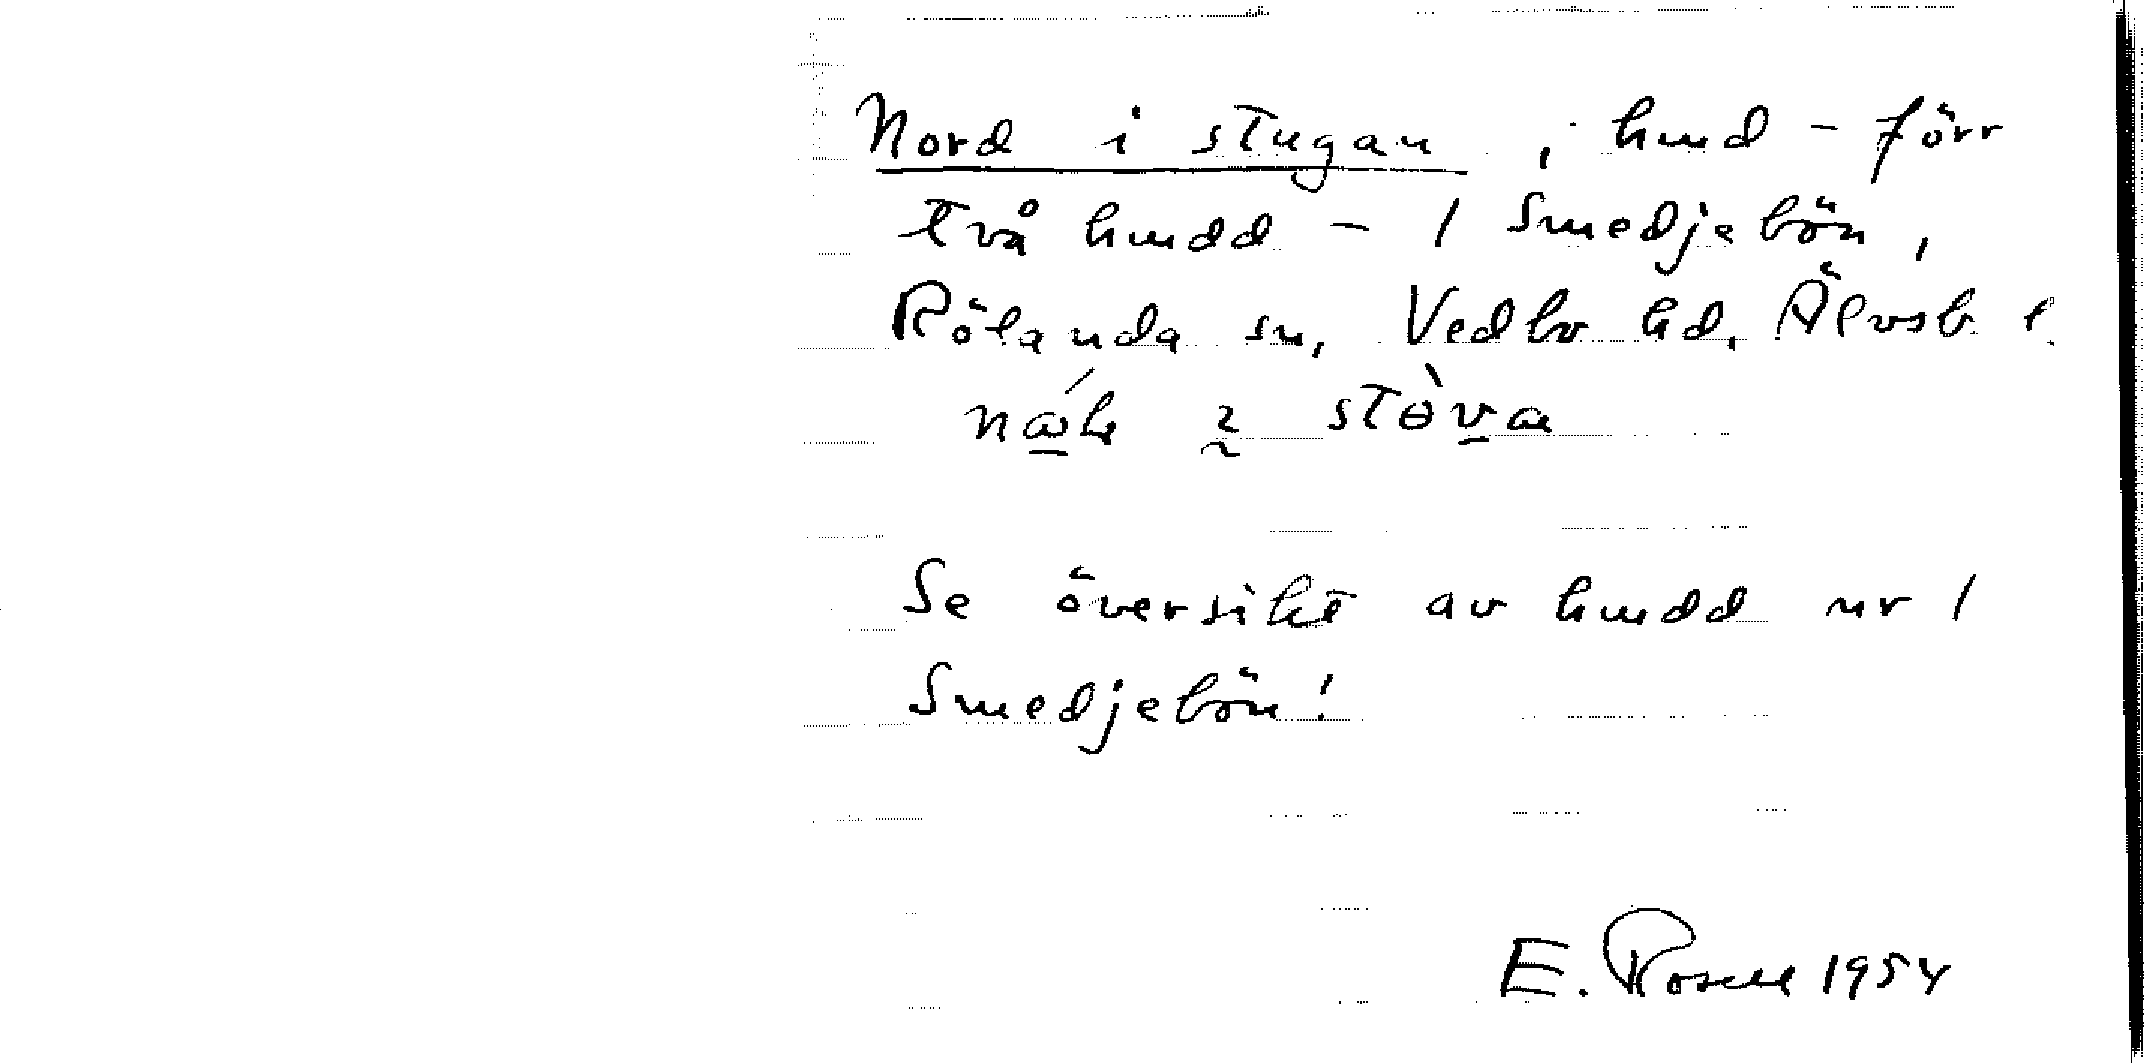 Nord i stugan, hmd - förr
två hmdd - 1 Smedjebön,
Rölanda sn, Vedbo hd, Älvsb l.
Se översikt av hmdd nr 1
Smedjebön!
E. Rosell 1954